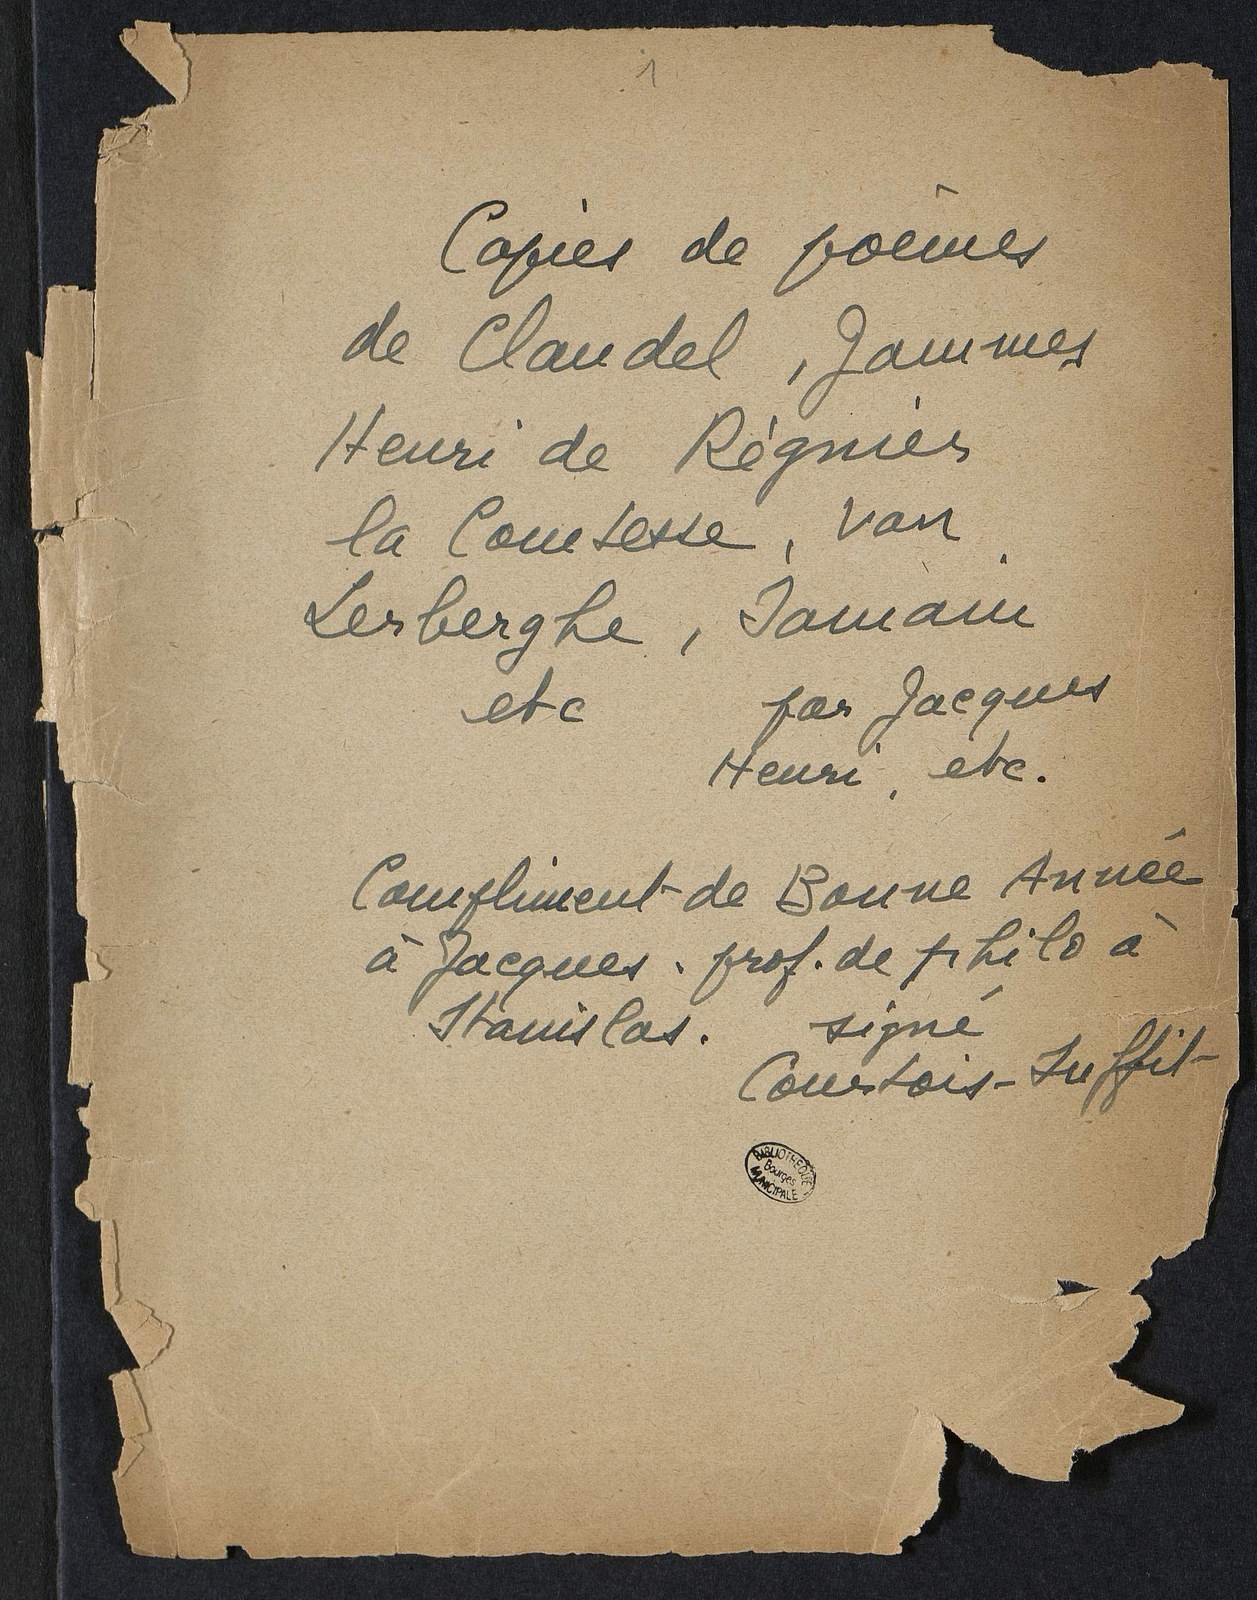 1
Copies de poèmes
de Claudel, Jammes
Henri de Régnier
la Comtesse, Van
Lerberghe, Samain
etc par Jacques
Henri, etc.
Compliment de Bonne Année
à Jacques. prof. de philo à
Stanislas. signé
Courtois-Suffit
BIBLIOTHEQUE
Bourges
MUNICIPALE